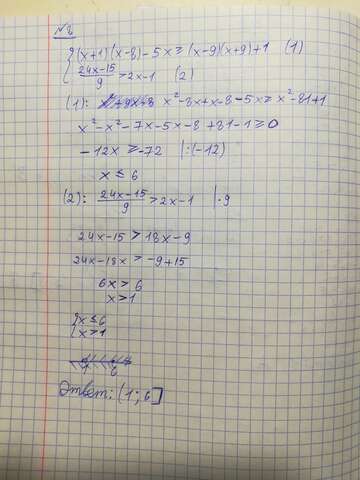 №8
{(x+1)(x-8)-5x≥(x-9)(x+9)+1 (1)
{24x-15/9>2x-1 (2)
(1): x²-8x+x-8-5x≥x²-81+1
x²-x²-7x-5x-8+81-1≥0
-12x≥-72 |:(-12)
x≤6
(2): 24x-15/9>2x-1 |·9
24x-15>18x-9
24x-18x>-9+15
6x>6
x>1
{x≤6
{x>1
1 6
Ответ: (1;6]